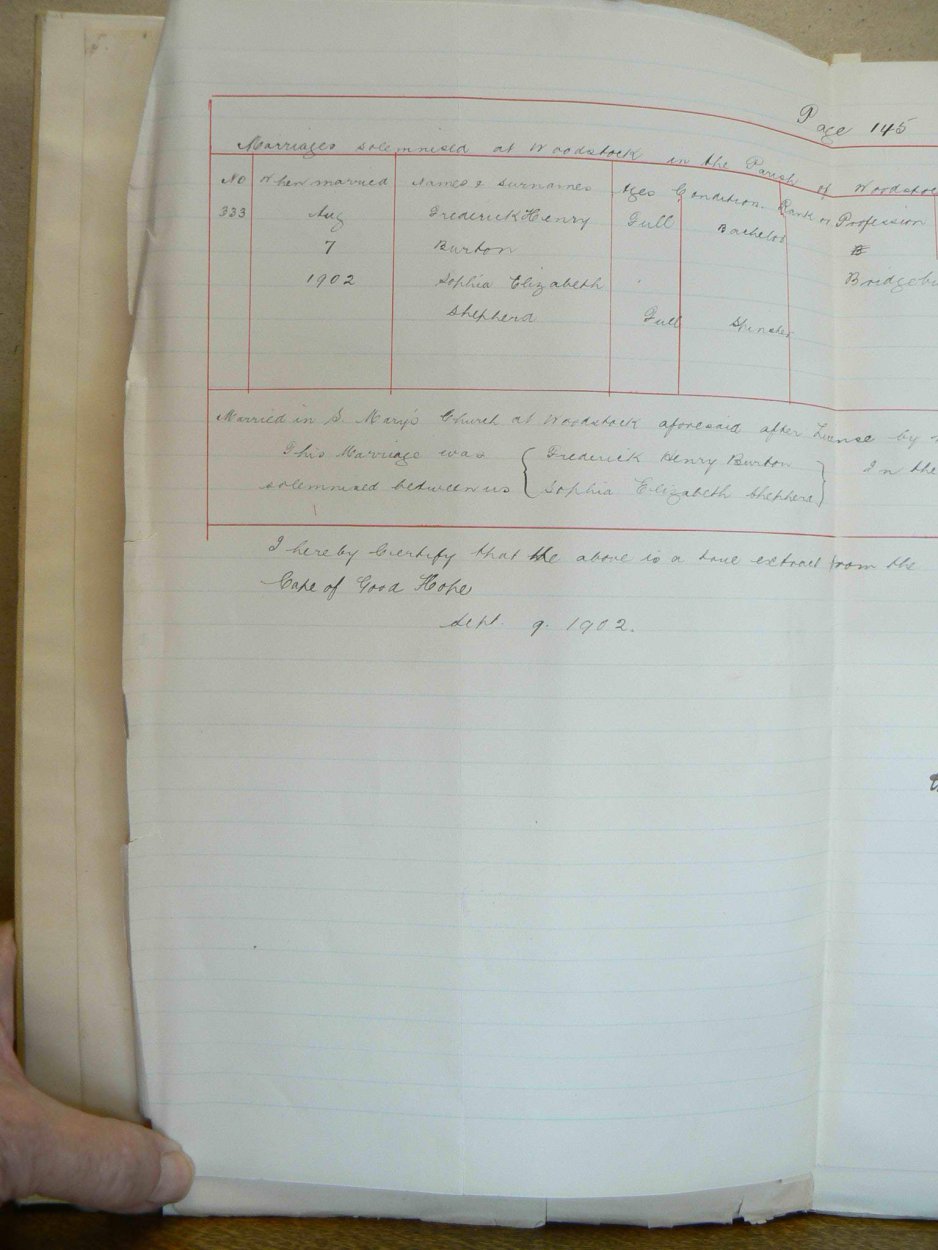 Page 145
Marriages solemnised at Woodstock in the Parish of Woodstoc
No When married Names & Surnames Ages Condition Rank or Profession
333 Aug Frederick Henry Full Bachelor
7 Burton B
1902 Sophia Elizabeth Bridgebu
Shepherd Full Spinster
Married in S. Mary's Church at Woodstock aforesaid after License by
This Marriage was { Frederick Henry Burton } In the
solemnised between us { Sophia Elizabeth Shepherd }
I hereby Certify that the above is a true extract from the
Cape of Good Hope
Sept 9. 1902.